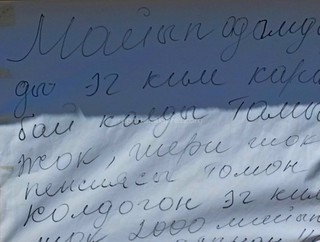 Майып адамды
ды эч ким кара
бай калды Тамы
жок, жери жок
пенсиясы томон
Колдогон эч ким
жок 2000 майып